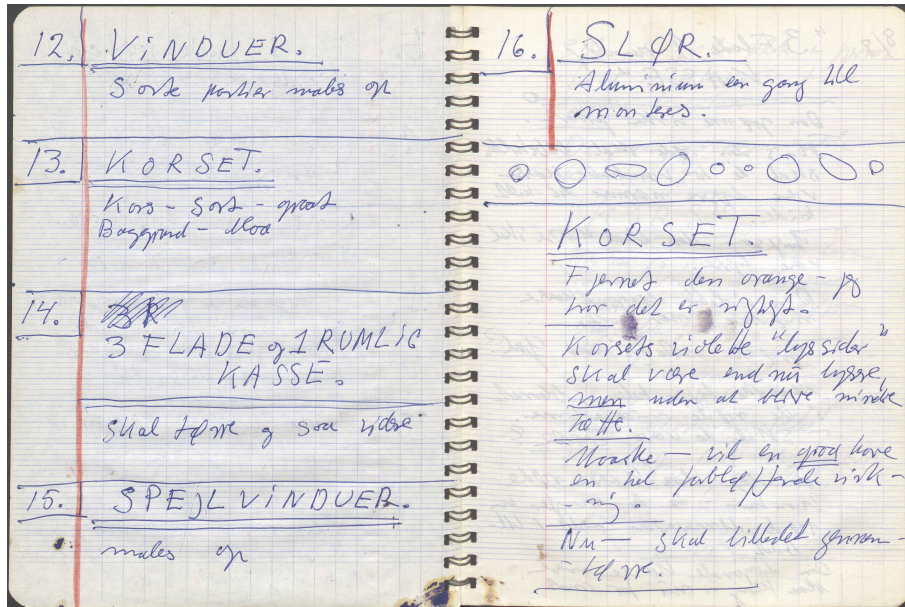 12. VINDUER.
Sorte partier males op
13. KORSET.
Kors - Sort - graat
Baggrund -
14.
3 FLADE og 1 RUMLIG
KASSE.
Skal tørre og saa videre
15. SPEJLVINDUER.
males op
16. SLØR.
Aluminium en gang till
monteres.
KORSET.
Fjernet den orange - jeg
tror det er rigtigt.
Korsets violette "lyssider"
skal være end nu lysere,
men uden at blive mindre
Tætte.
Maaske — vil en graa farve
en hel virk-
- ning.
Nu — skal billedet gennem-
- tørre.